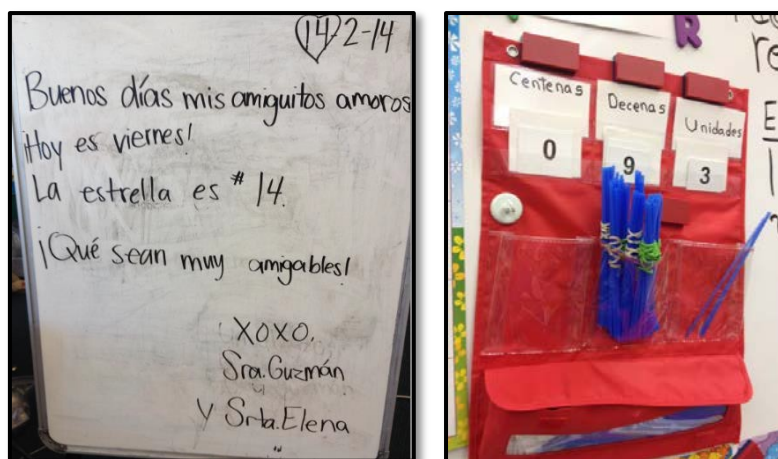 14-2-14
Buenos días mis amiguitos amoros
¡Hoy es viernes!
La estrella es #14.
¡Qué sean muy amigables!
XOXO,
Sra. Guzmán
y Srta. Elena
R
Centenas
Decenas
Unidades
0
9
3